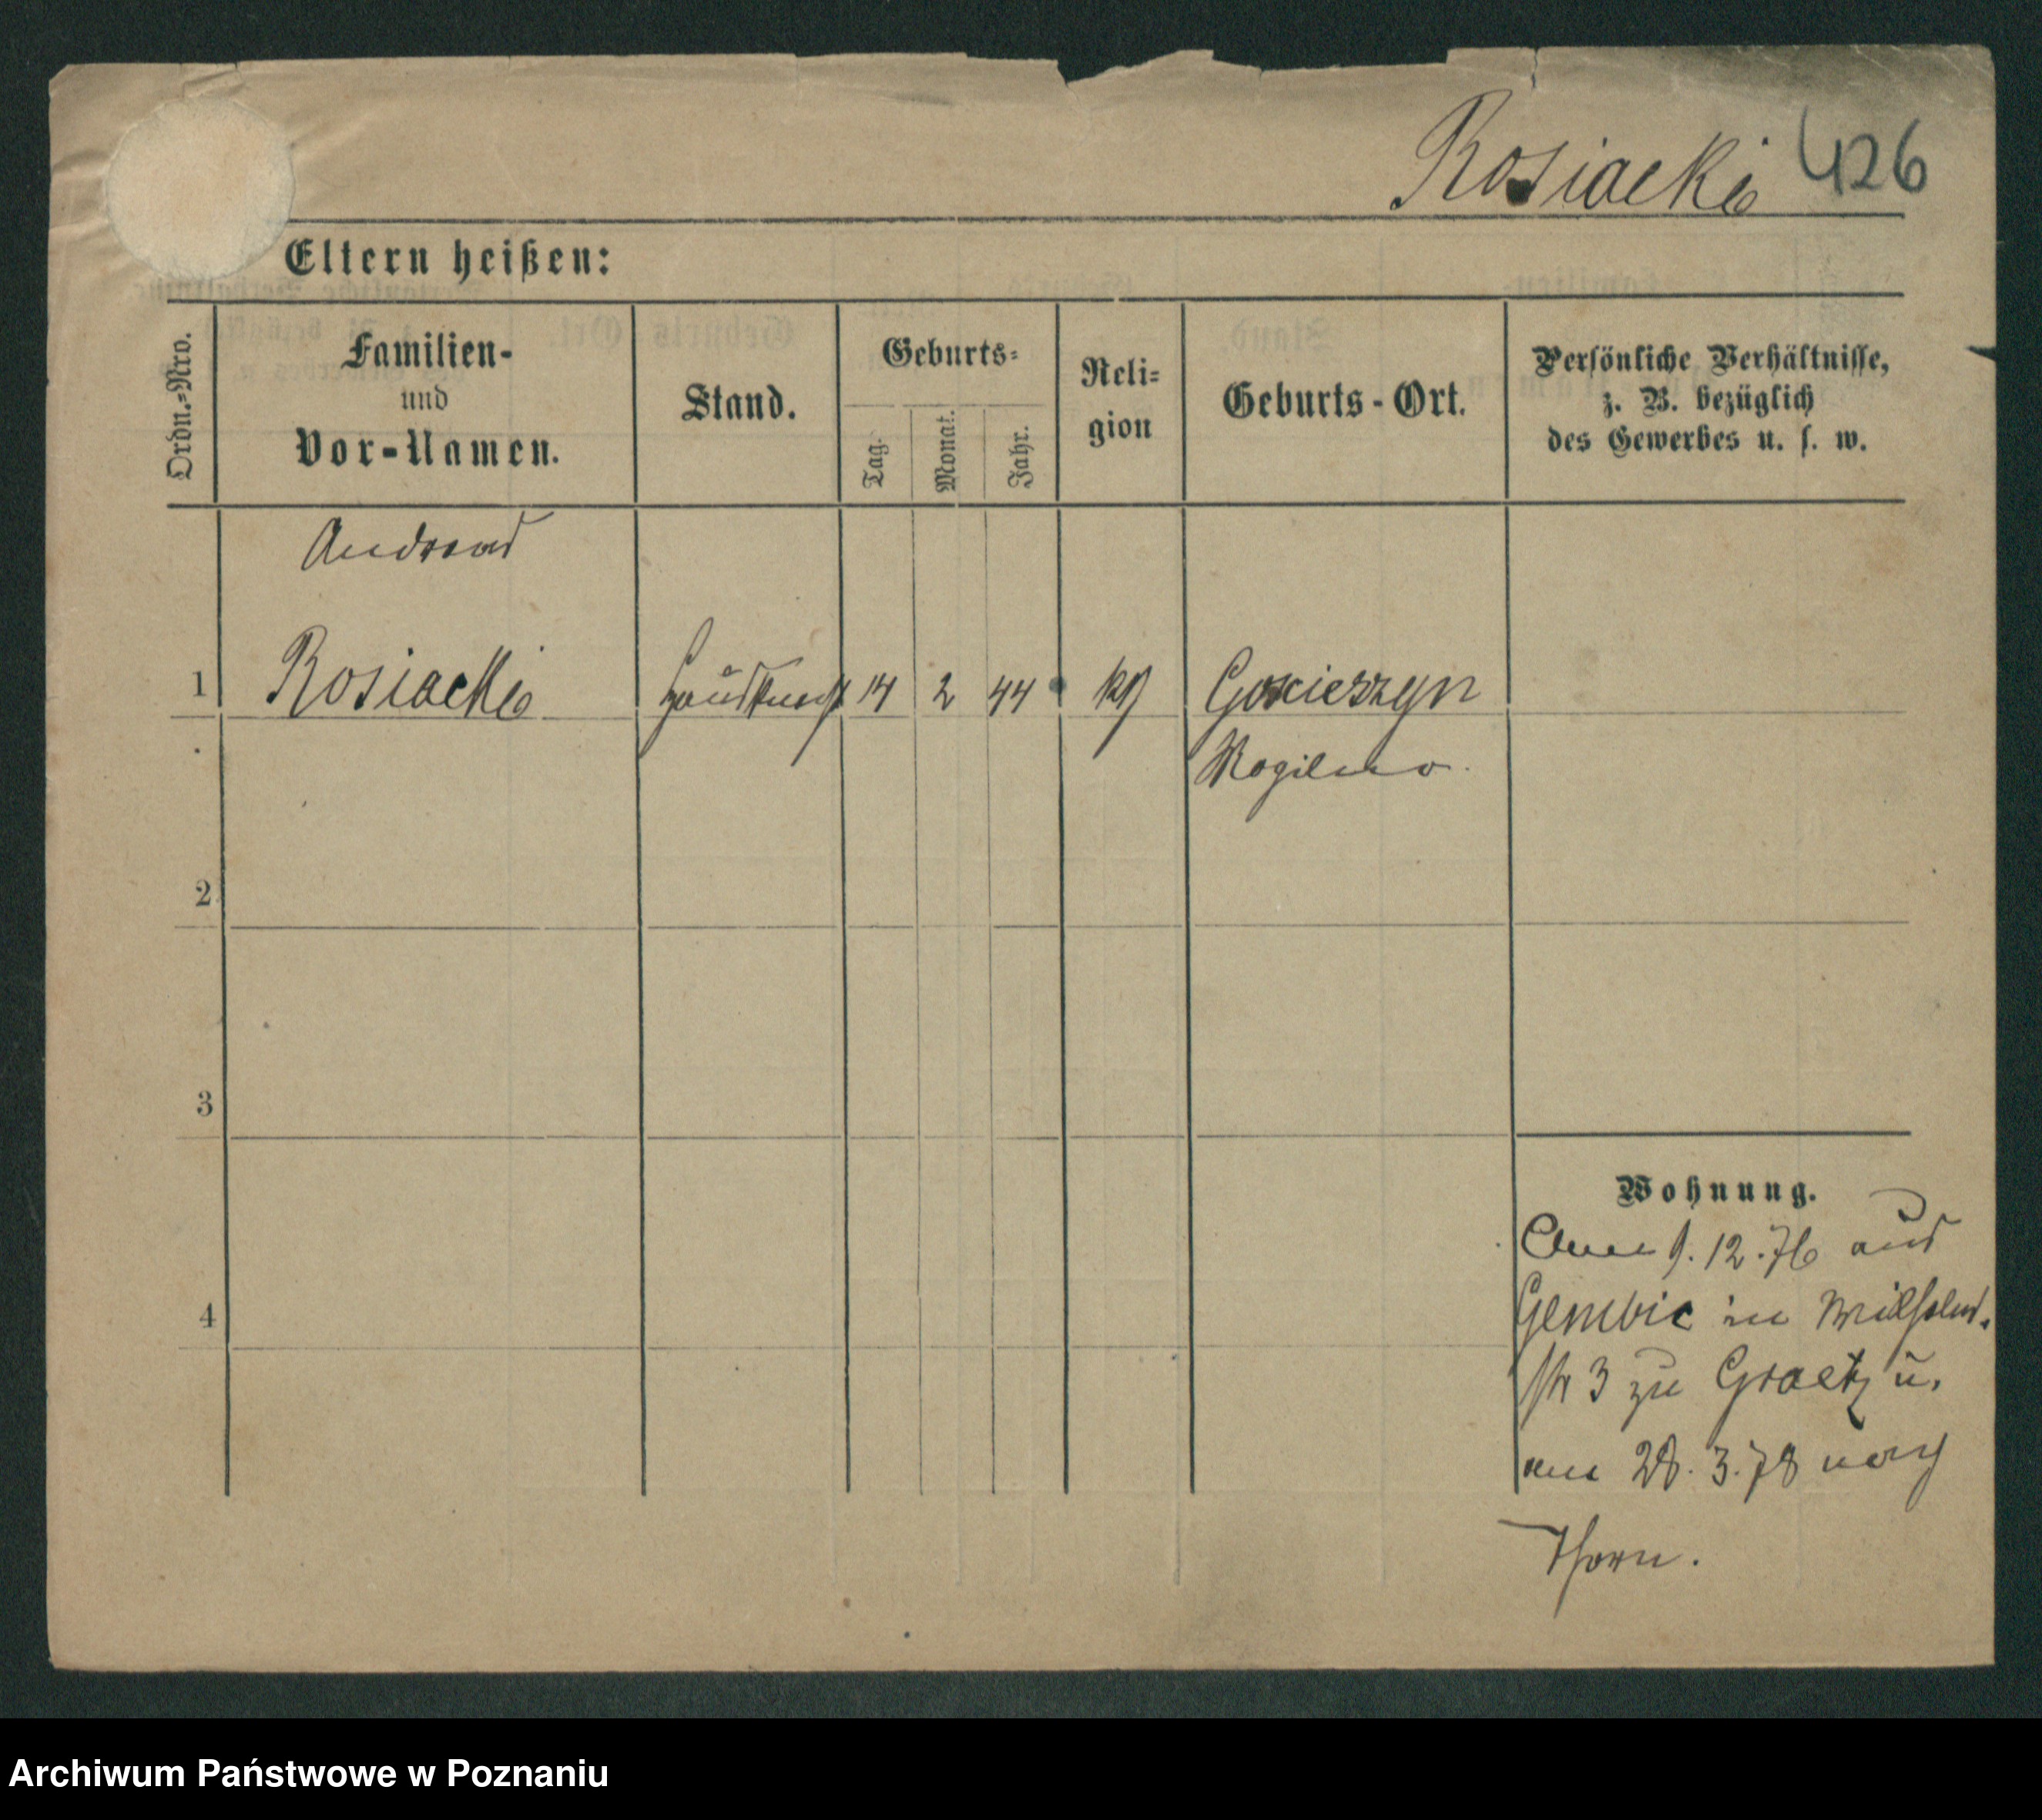 Rosiacki 426
Eltern heißen:
Ordn.-Nro.
Familien-
und
Vor-Namen.
Stand.
Geburts-
Tag.
Monat.
Jahr.
Reli-
gion
Geburts-Ort.
Persönliche Verhältnisse,
z. B. bezüglich
des Gewerbes u. s. w.
Andreas
1 Rosiacki Hausknecht 14 2 44 kth Goscieszyn
Mogilno.
2
3
4
Wohnung.
9.12.76 aus
Gembic in Wilhelm.
str 3 zu Graetz u.
am 28.3.78 nach
Thorn.
Archiwum Państwowe w Poznaniu